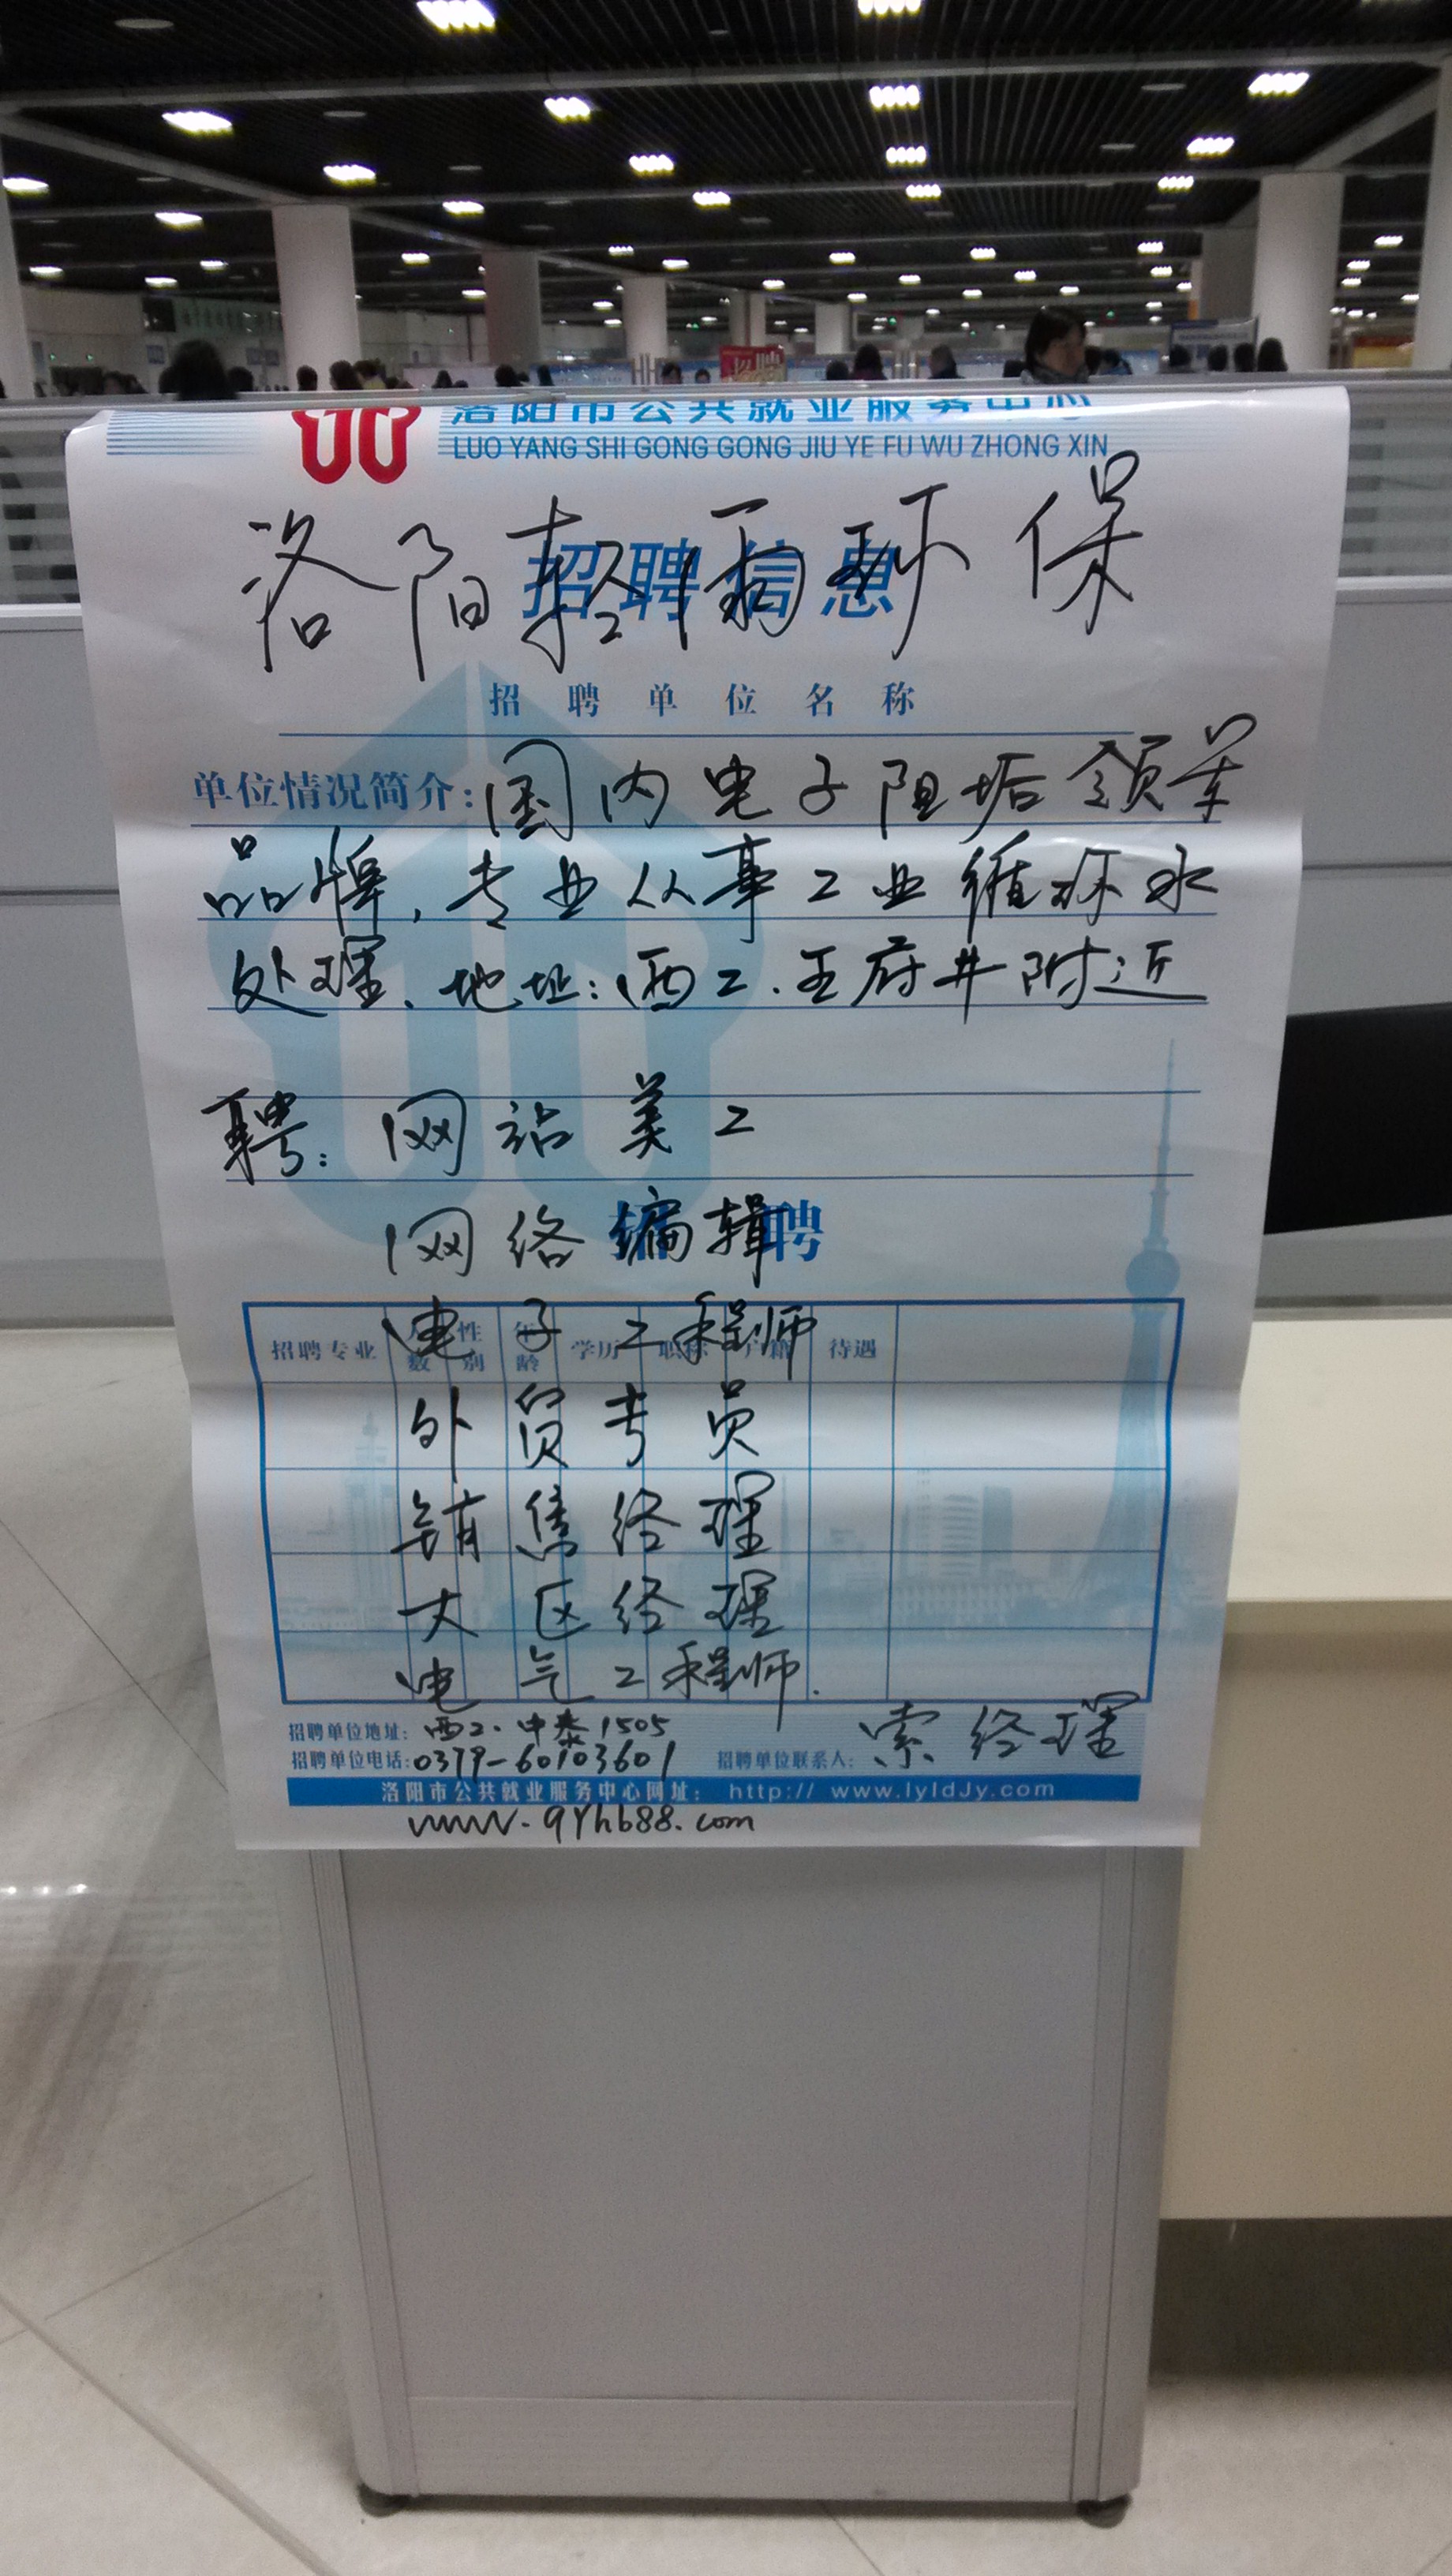 洛阳市公共就业服务中心
LUO YANG SHI GONG GONG JIU YE FU WU ZHONG XIN
招聘信息
洛阳轻雨环保
招聘单位名称
单位情况简介：国内电子阻垢领军
品牌，专业从事工业循环水
处理、地址：西工.王府井附近
聘：网站美工
招聘
网络编辑
招聘专业 人数 性别 年龄 学历 职称 户籍 待遇
电子工程师
外贸专员
销售经理
大区经理
电气工程师.
招聘单位地址：西工.中泰1505
招聘单位电话：0379-60103601 招聘单位联系人：索经理
洛阳市公共就业服务中心网址： http:// www.lyldJy.com
www.qyhb88.com